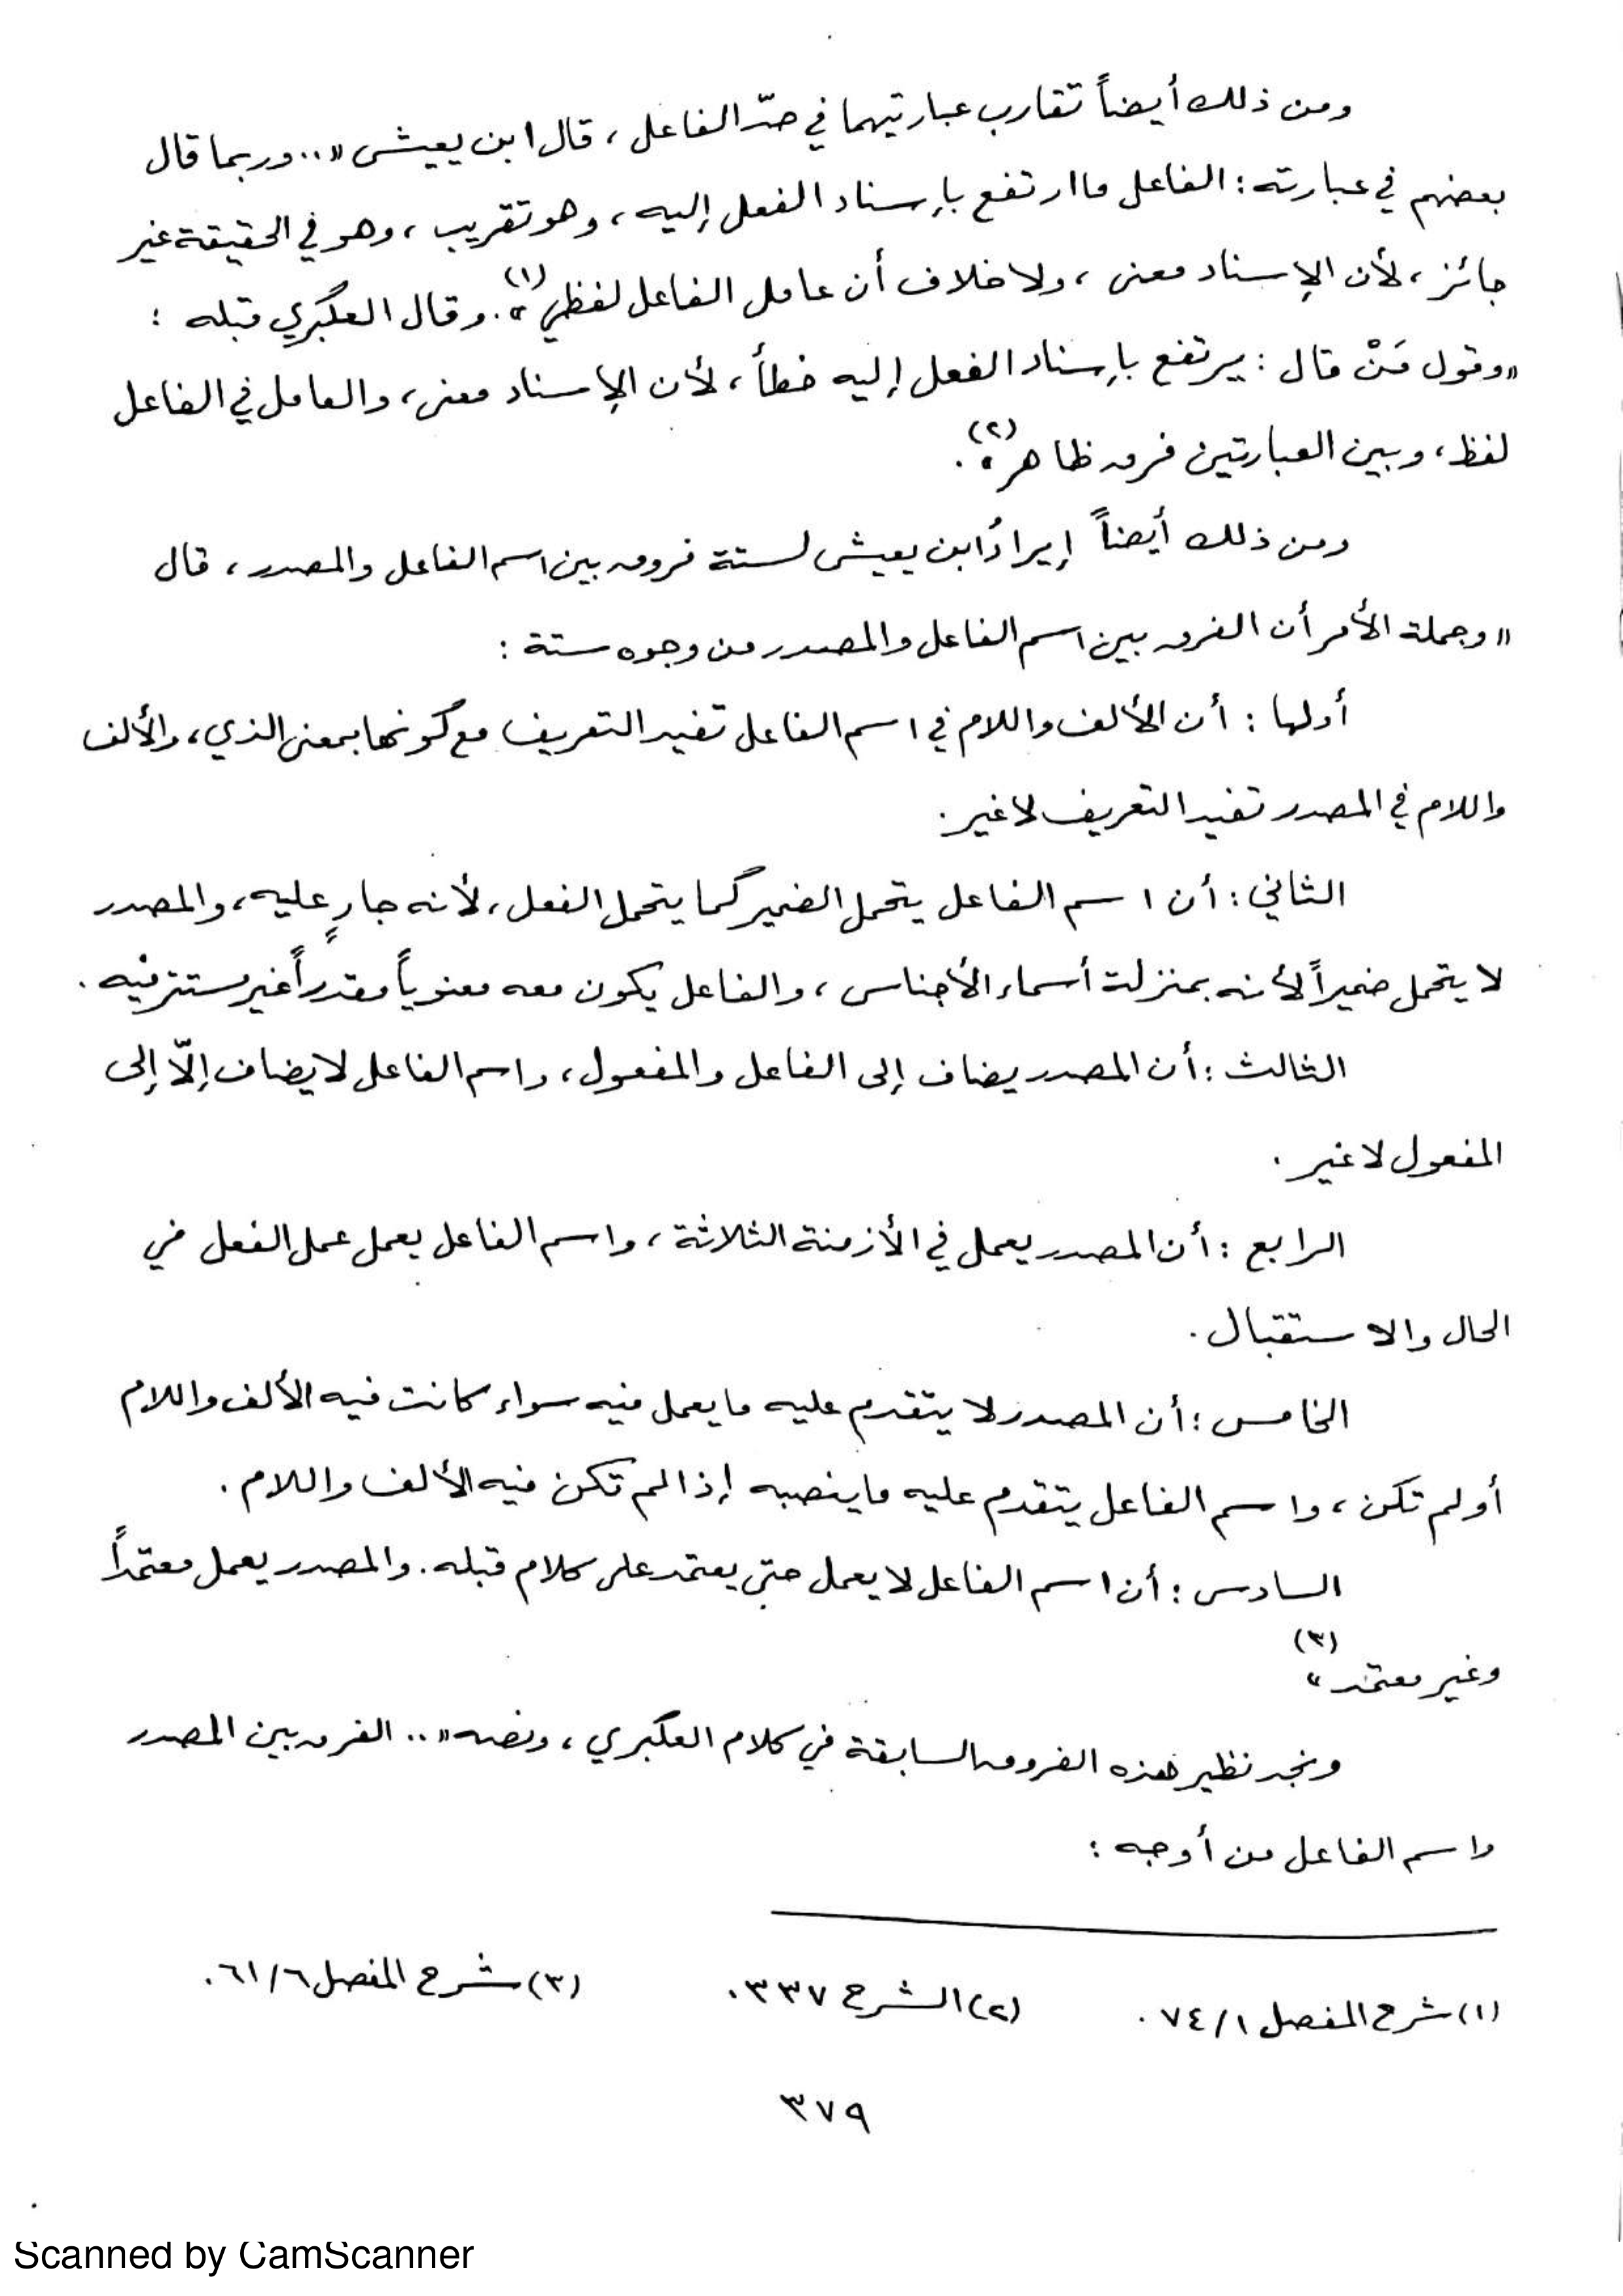 ومن ذلك أيضاً تقارب عبارتيهما في حدّ الفاعل ، قال ابن يعيش «.. وربما قال
بعضهم في عبارته : الفاعل ما ارتفع بإسناد الفعل إليه ، وهو تقريب ، وهو في الحقيقة غير
جائز ، لأن الإسناد معنى ، ولا خلاف أن عامل الفاعل لفظي»(١). وقال العكبري قبله :
«وقول مَنْ قال : يرتفع بإسناد الفعل إليه خطأ ، لأن الإسناد معنى ، والعامل في الفاعل
لفظ ، وبين العبارتين فرق ظاهر»(٢).
ومن ذلك أيضاً إيرادُ ابن يعيش لستة فروق بين اسم الفاعل والمصدر ، قال
«وجملة الأمر أن الفرق بين اسم الفاعل والمصدر من وجوه ستة :
أولها : أن الألف واللام في اسم الفاعل تفيد التعريف مع كونها بمعنى الذي ، والألف
واللام في المصدر تفيد التعريف لا غير .
الثاني : أن اسم الفاعل يتحمل الضمير كما يتحمل الفعل ، لأنه جارٍ عليه ، والمصدر
لا يتحمل ضميراً لأنه بمنزلة أسماء الأجناس ، والفاعل يكون معه معنوياً مقدراً غير مستتر فيه .
الثالث : أن المصدر يضاف إلى الفاعل والمفعول ، واسم الفاعل لا يضاف إلّا إلى
المفعول لا غير .
الرابع : أن المصدر يعمل في الأزمنة الثلاثة ، واسم الفاعل يعمل عمل الفعل في
الحال والاستقبال .
الخامس : أن المصدر لا يتقدم عليه ما يعمل فيه سواء كانت فيه الألف واللام
أو لم تكن ، واسم الفاعل يتقدم عليه ما ينصبه إذا لم تكن فيه الألف واللام .
السادس : أن اسم الفاعل لا يعمل حتى يعتمد على كلام قبله . والمصدر يعمل معتمداً
وغير معتمد»(٣)
ونجد نظير هذه الفروق السابقة في كلام العكبري ، ونصه «.. الفرق بين المصدر
واسم الفاعل من أوجه :
(١) شرح المفصل ٧٤/١ . (٢) الشرح ٣٣٧ . (٣) شرح المفصل ٦١/٦ .
٣٧٩
Scanned by CamScanner